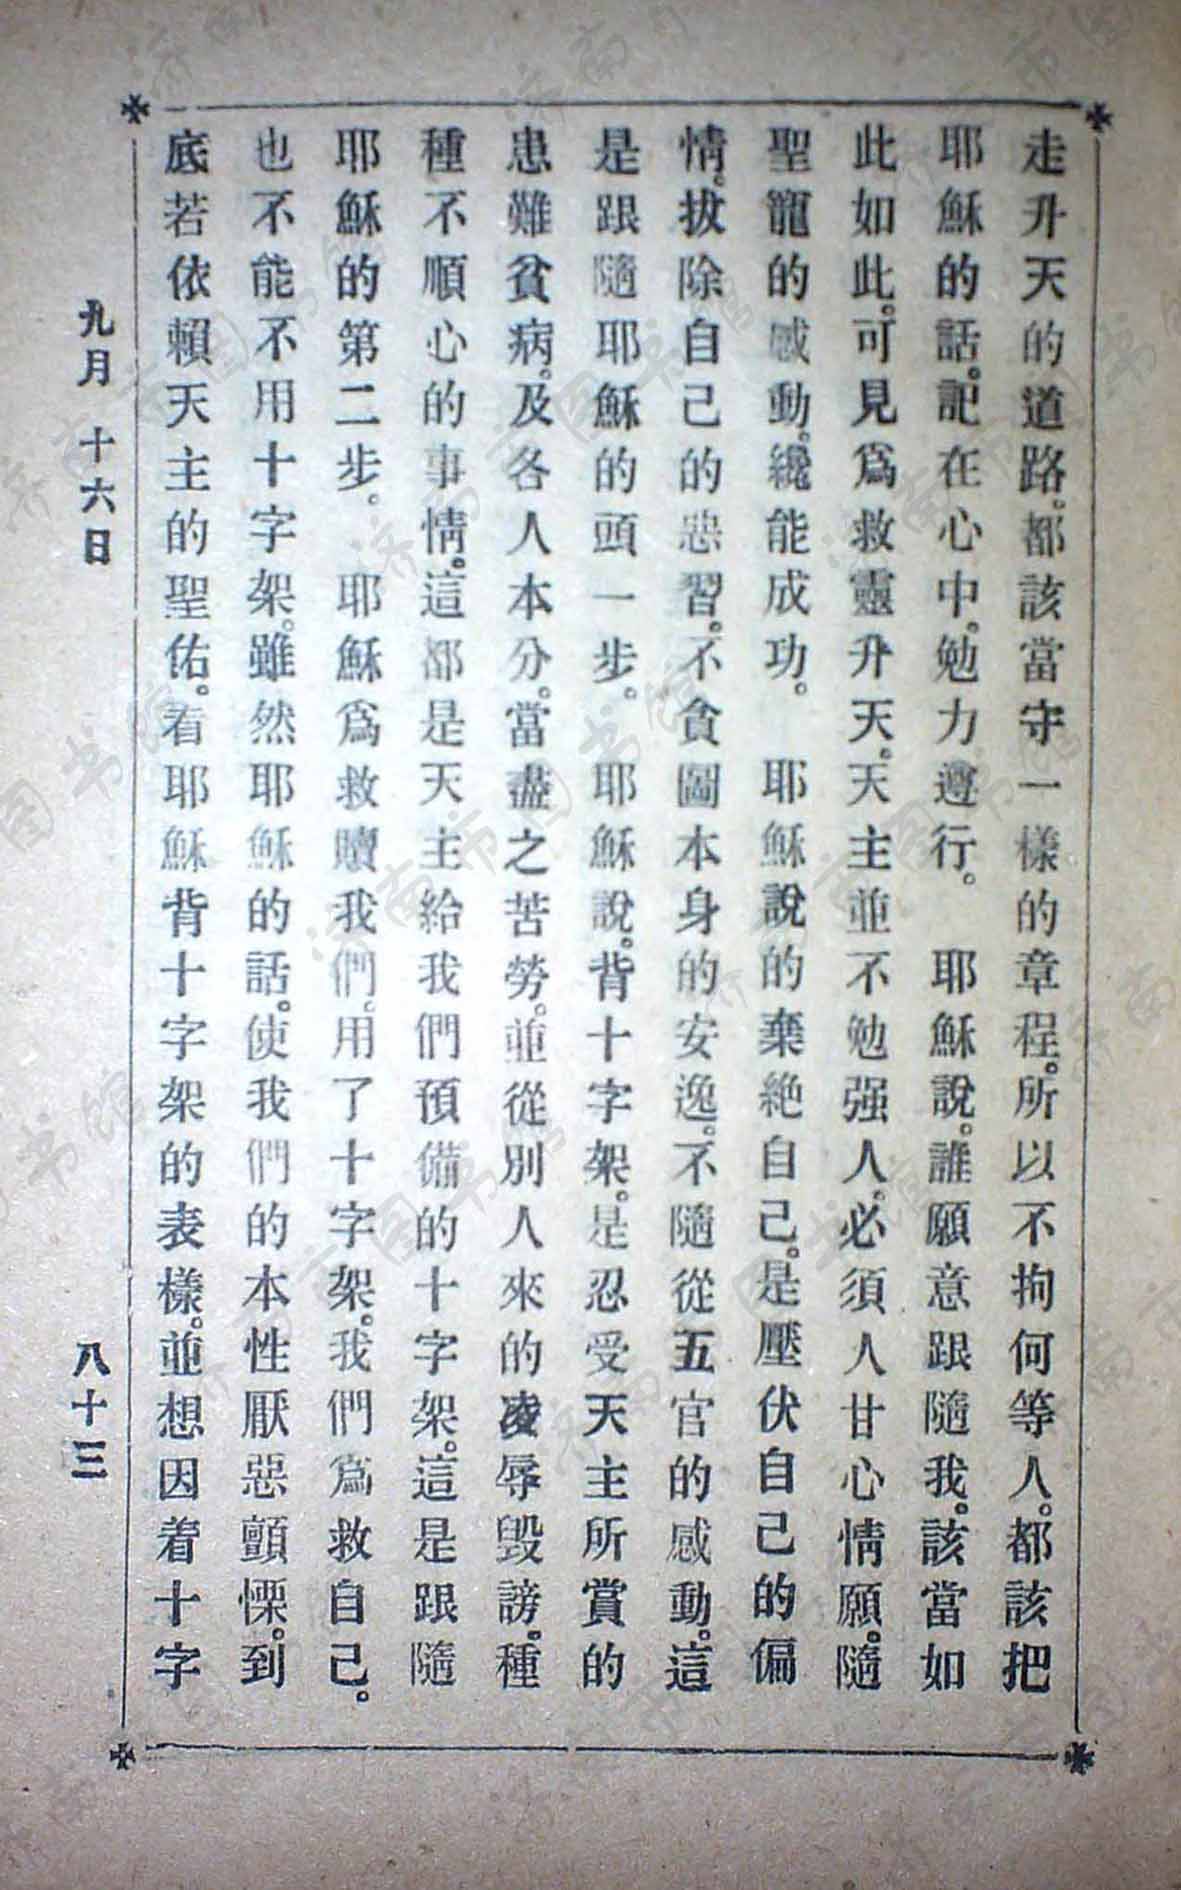 走升天的道路。都該當守一樣的章程。所以不拘何等人。都該把
耶穌的話。記在心中。勉力遵行。　耶穌說。誰願意跟隨我。該當如
此如此。可見爲救靈升天。天主並不勉强人。必須人甘心情願。隨
聖寵的感動。纔能成功。　耶穌說的棄絶自己。是壓伏自己的偏
情。拔除自己的惡習。不貪圖本身的安逸。不隨從五官的感動。這
是跟隨耶穌的頭一步。　耶穌說。背十字架。是忍受天主所賞的
患難貧病。及各人本分。當盡之苦勞。並從別人來的凌辱毀謗。種
種不順心的事情。這都是天主給我們預備的十字架。這是跟隨
耶穌的第二步。　耶穌爲救贖我們。用了十字架。我們爲救自己。
也不能不用十字架。雖然耶穌的話。使我們的本性厭惡顫慄。到
底若依賴天主的聖佑。看耶穌背十字架的表樣。並想因着十字
九月十六日　八十三
济南市图书馆